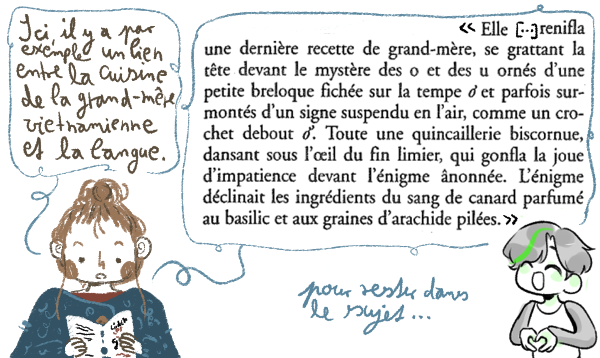 Ici, il y a par
exemple un lien
entre la cuisine
de la grand-mère
vietnamienne
et la langue.
« Elle [...] renifla
une dernière recette de grand-mère, se grattant la
tête devant le mystère des o et des u ornés d'une
petite breloque fichée sur la tempe ơ et parfois sur-
montés d'un signe suspendu en l'air, comme un cro-
chet debout ở. Toute une quincaillerie biscornue,
dansant sous l'œil du fin limier, qui gonfla la joue
d'impatience devant l'énigme ânonnée. L'énigme
déclinait les ingrédients du sang de canard parfumé
au basilic et aux graines d'arachide pilées. »
pour rester dans
le sujet...